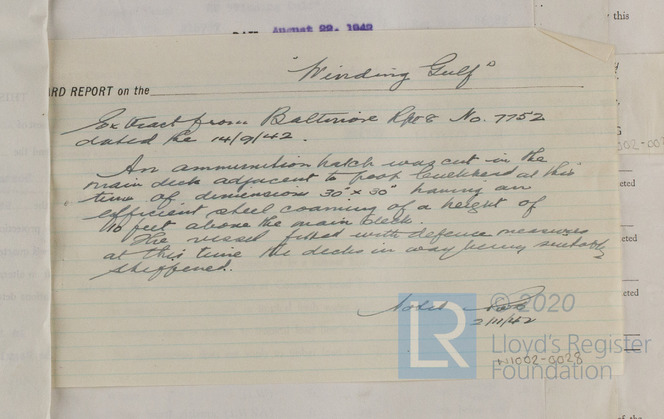 this
August 22, 1942
"Winding Gulf"
RD REPORT on the
Extract from Baltimore Rpt 8 No. 7752
dated the 14/9/42.
An ammunition hatch was cut in the
main deck adjacent to poop bulkhead at this
time of dimensions 30" x 30" having an
efficient steel coaming of a height of
10 feet above the main deck.
The vessel fitted with defence measures
at this time the decks in way being suitably
stiffened.
Noted
2/11/42
© 2020
LR
Lloyd's Register
Foundation
W1002-0028